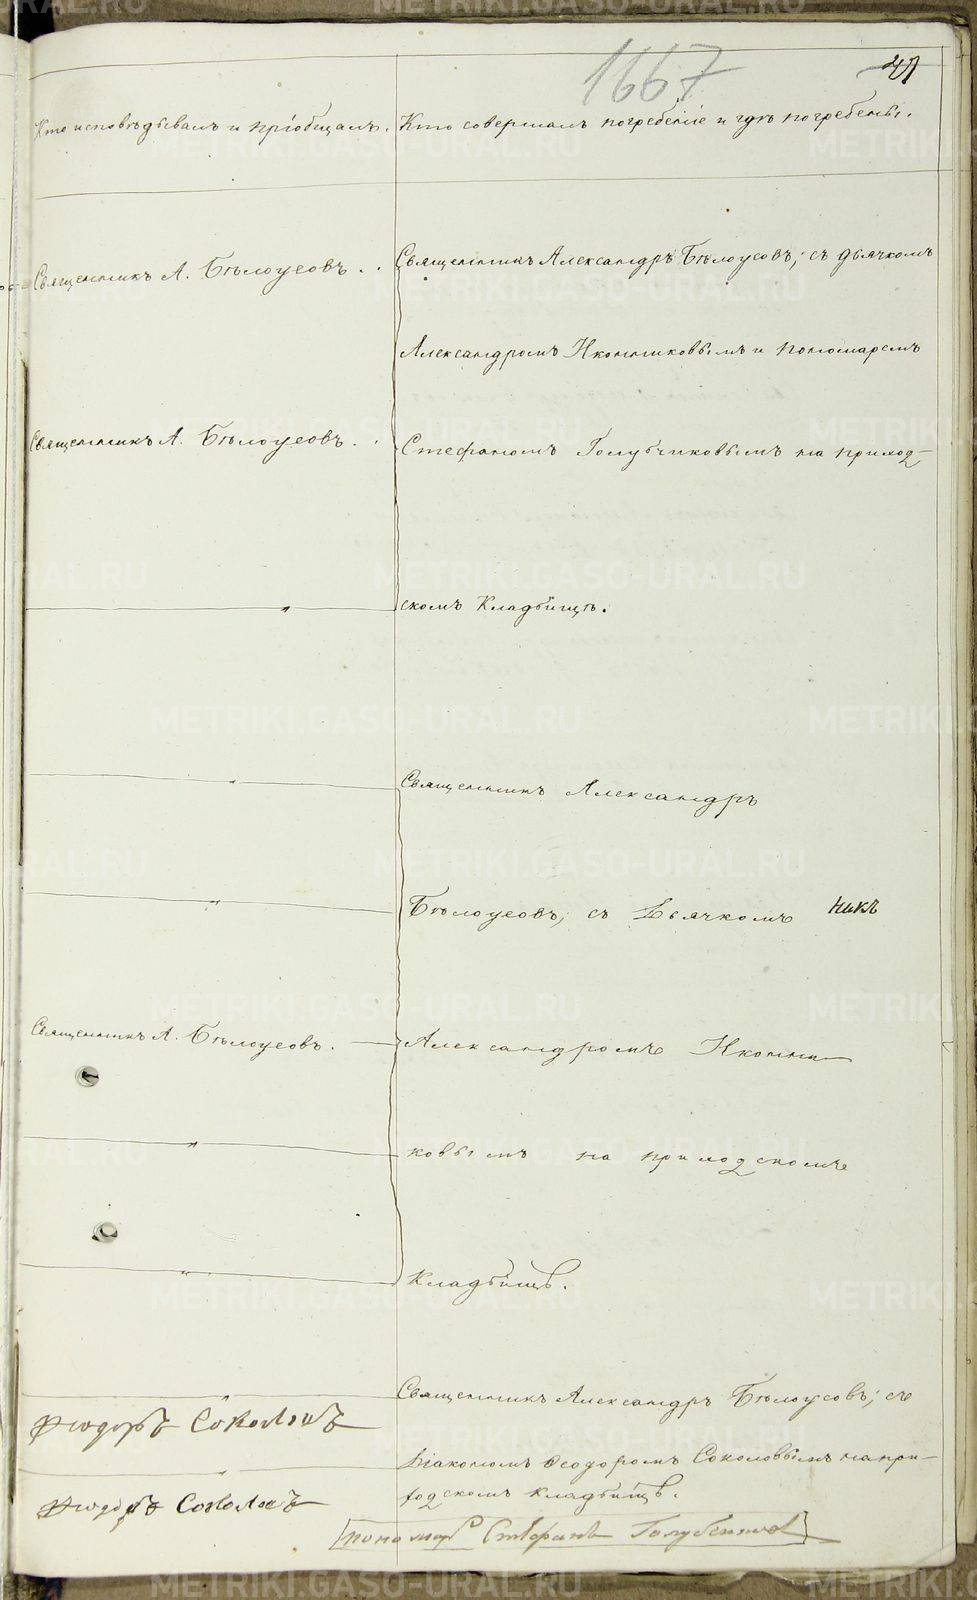 1667
41
Кто исповѣдывалъ и пріобщалъ.
Кто совершалъ погребеніе и гдѣ погребены.
Священникъ А. Бѣлоусовъ.
Священникъ Александръ Бѣлоусовъ, съ дьячкомъ
Александромъ Иконниковымъ и пономаремъ
Священникъ А. Бѣлоусовъ.
Стефаномъ Голубчиковымъ на приход-
скомъ Кладбищѣ.
Священникъ Александръ
Бѣлоусовъ, съ Дьячкомъ
Александромъ Иконни
Священникъ А. Бѣлоусовъ.
ковымъ на приходскомъ
Кладбищѣ.
Священникъ Александръ Бѣлоусовъ, съ
Ѳеодоръ Соколовъ
Діакономъ Ѳеодоромъ Соколовымъ на при-
ходскомъ кладбищѣ.
Ѳеодоръ Соколовъ
пономарь Стефанъ Голубчиковъ
METRIKI.GASO-URAL.RU